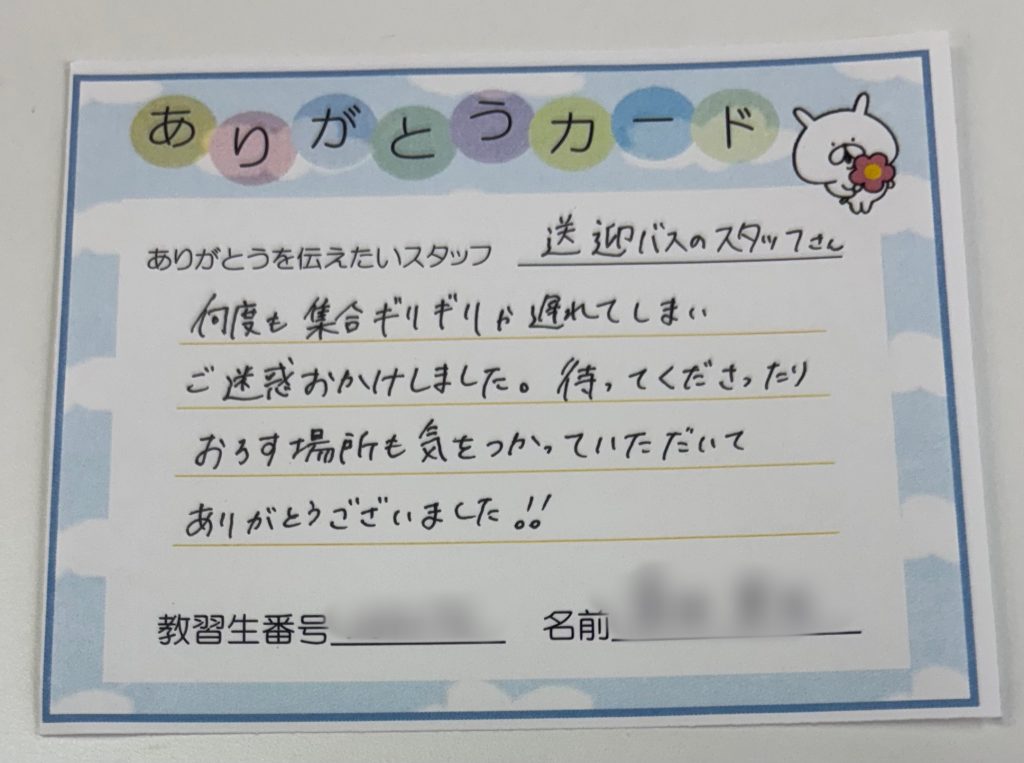 ありがとうカード
ありがとうを伝えたいスタッフ 送迎バスのスタッフさん
何度も集合ギリギリか遅れてしまい
ご迷惑おかけしました。待ってくださったり
おろす場所も気をつかっていただいて
ありがとうございました!!
教習生番号 名前